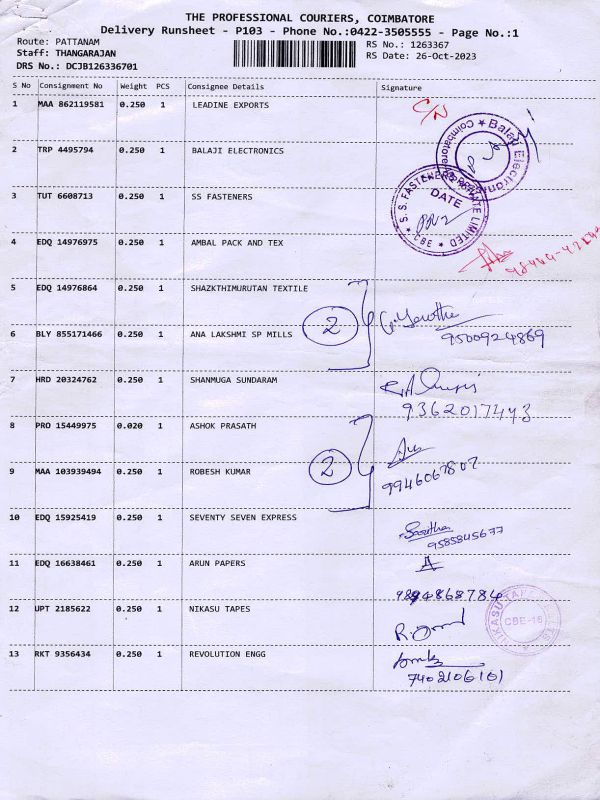 THE PROFESSIONAL COURIERS, COIMBATORE
Delivery Runsheet - P103 - Phone No.:0422-3505555 - Page No.:1
Route: PATTANAM
RS No.: 1263367
Staff: THANGARAJAN
RS Date: 26-Oct-2023
DRS No.: DCJB126336701
S No Consignment No Weight PCS Consignee Details Signature
1 MAA 862119581 0.250 1 LEADINE EXPORTS C/N
2 TRP 4495794 0.250 1 BALAJI ELECTRONICS
Balaji Electronics ★ Coimbatore
3 TUT 6608713 0.250 1 SS FASTENERS
S.S. FASTENERS PRIVATE LIMITED ★ CBE ★
DATE
4 EDQ 14976975 0.250 1 AMBAL PACK AND TEX
5 EDQ 14976864 0.250 1 SHAZKTHIMURUTAN TEXTILE
2
6 BLY 855171466 0.250 1 ANA LAKSHMI SP MILLS 9500924869
7 HRD 20324762 0.250 1 SHANMUGA SUNDARAM
9362017443
8 PRO 15449975 0.020 1 ASHOK PRASATH
2
9 MAA 103939494 0.250 1 ROBESH KUMAR 9946067807
10 EDQ 15925419 0.250 1 SEVENTY SEVEN EXPRESS
9585845677
11 EDQ 16638461 0.250 1 ARUN PAPERS
12 UPT 2185622 0.250 1 NIKASU TAPES
CBE-16
13 RKT 9356434 0.250 1 REVOLUTION ENGG
7402106101